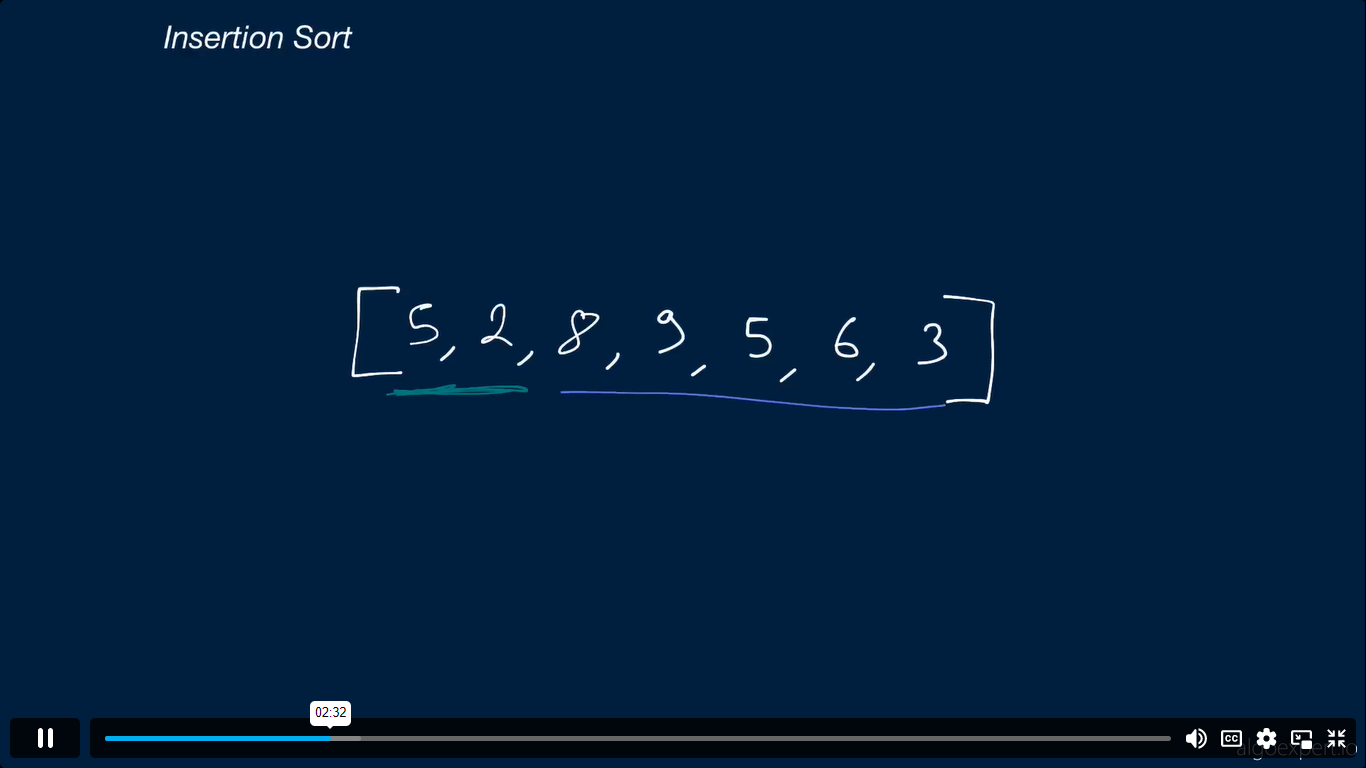 Insertion Sort
[5, 2, 8, 9, 5, 6, 3]
02:32
CC
algoexpert.io